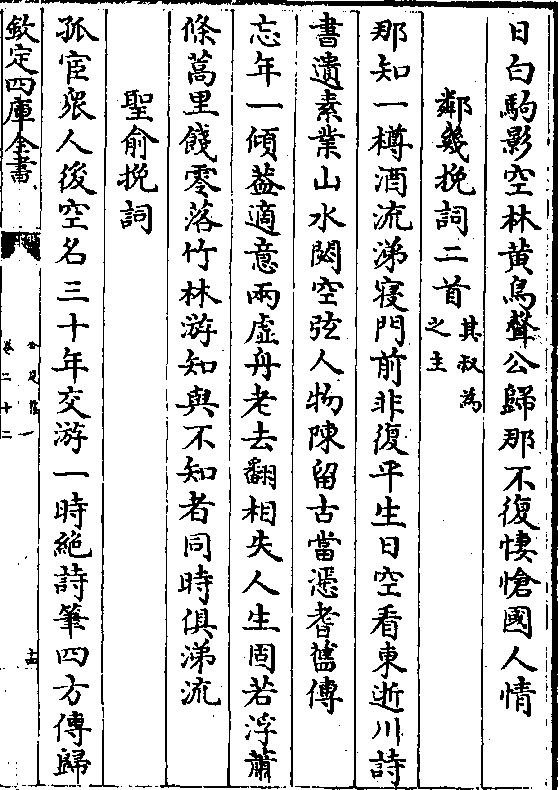 日白駒影空林黃鳥聲公歸那不復悽愴國人情
鄰幾挽詞二首其叔為之主
那知一樽酒流涕寢門前非復平生日空看東逝川詩
書遺素業山水閟空弦人物陳留古當憑耆舊傳
忘年一傾葢適意兩虛舟老去翻相失人生固若浮蕭
條蒿里餞零落竹林游知與不知者同時俱涕流
聖俞挽詞
孤宦衆人後空名三十年交游一時絶詩筆四方傳歸
欽定四庫全書
卷二十二